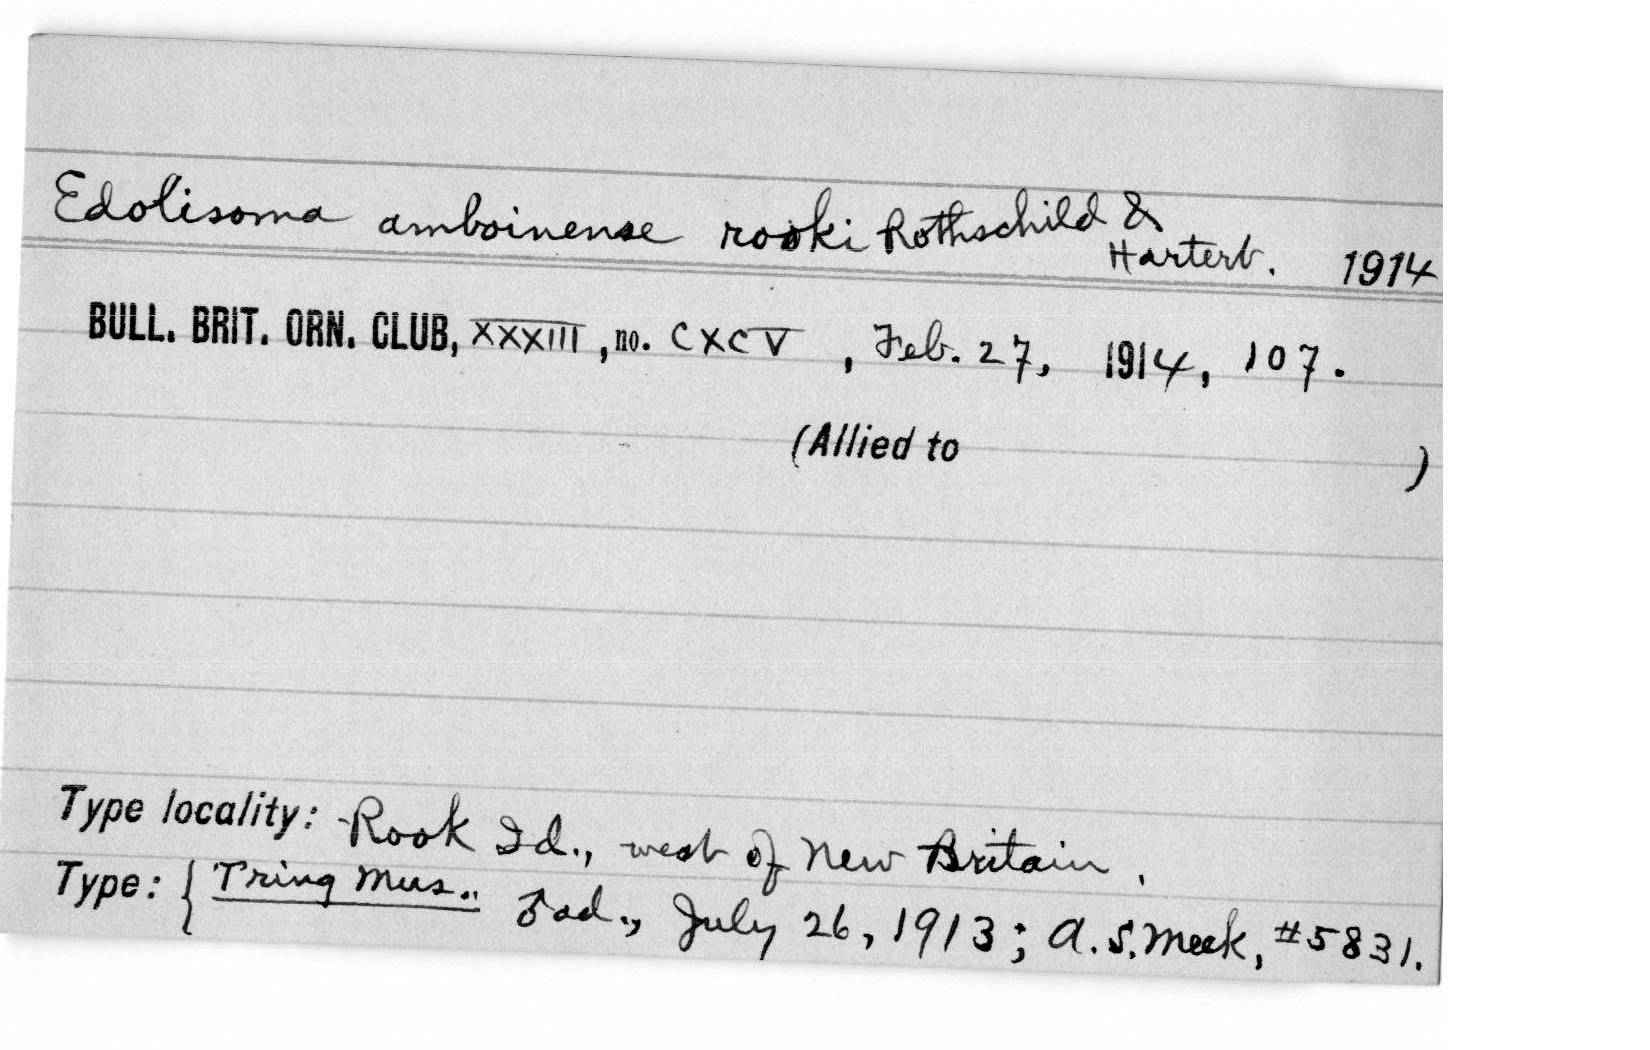 Edolisoma amboinense rooki Rothschild &
Hartert. 1914
BULL. BRIT. ORN. CLUB, XXXIII, no. CXCV, Feb. 27, 1914, 107.
(Allied to )
Type locality: Rook Id., west of New Britain.
Type: { Tring Mus.. ♂ ad., July 26, 1913; A. S. Meek, #5831.